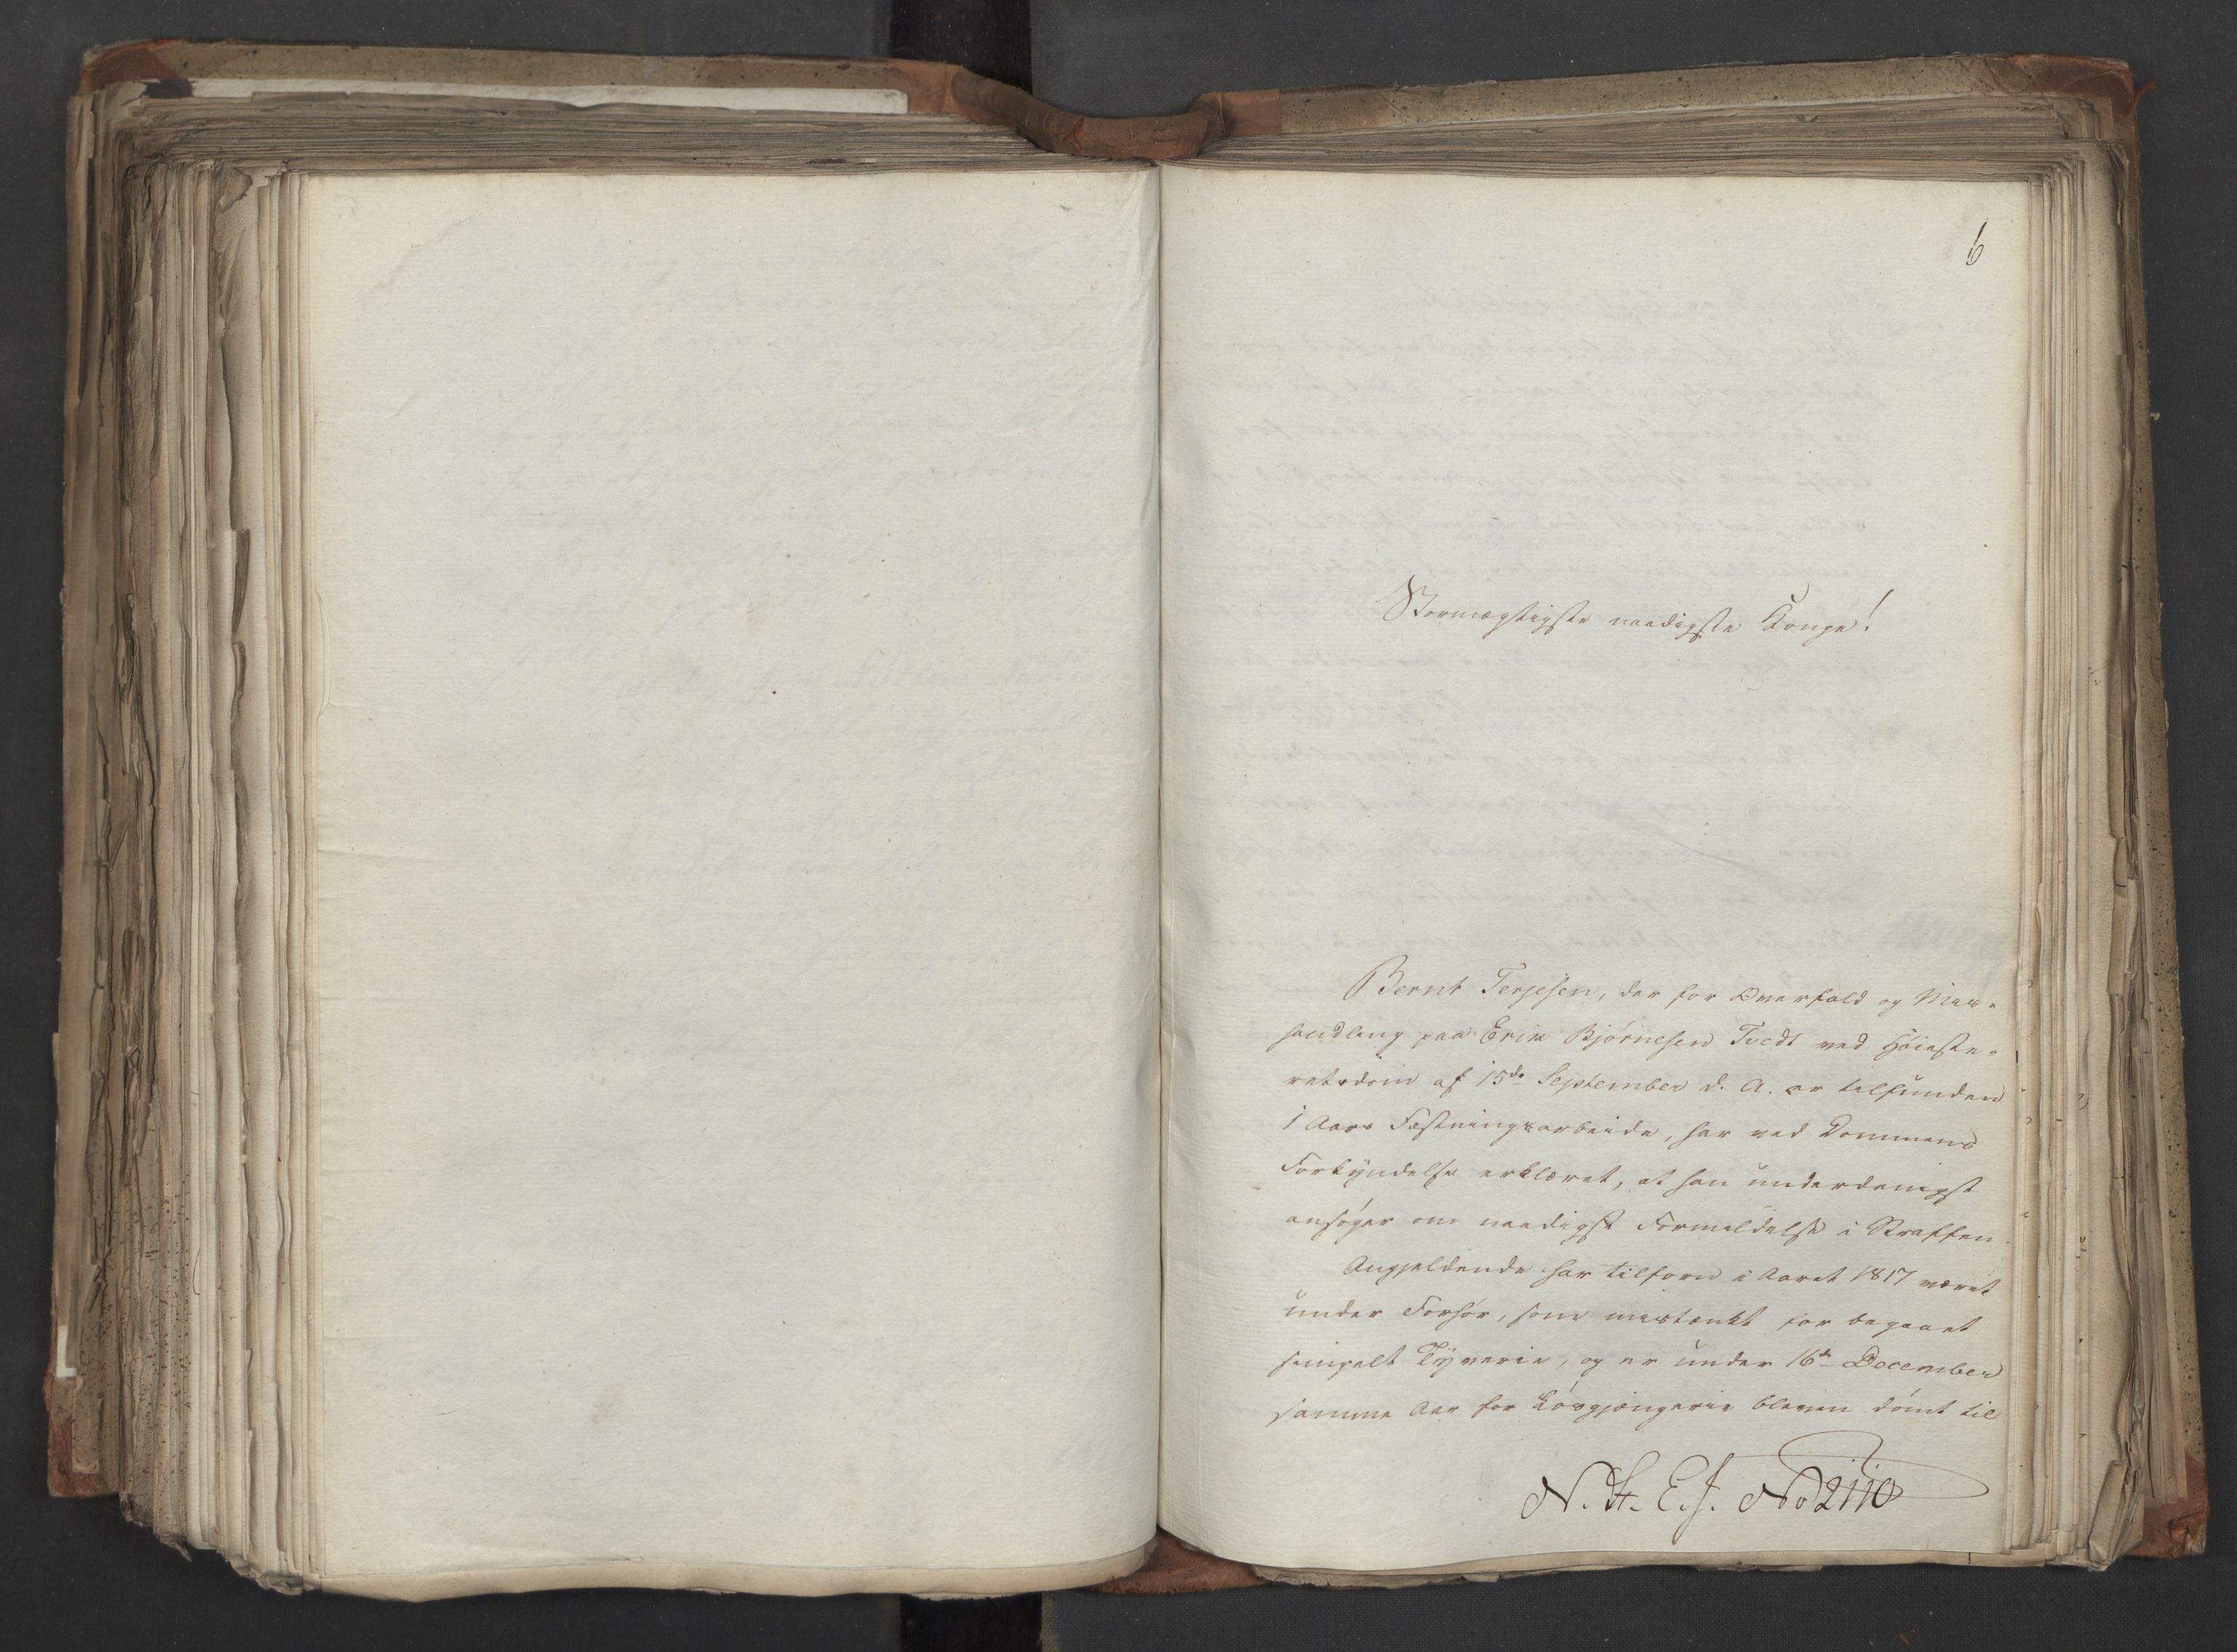 6
Stormægtigste naadigste Konge!
Bernt Terjesen, der for Overfald og Mis-
handling paa Erik Bjørnesen Tvedt ved Høieste-
retsdom af 15de September d. A. er tilfunden
1 Aars Fæstningsarbeide, har ved Dommens
Forkyndelse erklæret, at han underdanigst
ansøger om naadigst Formildelse i Straffen.
Angjeldende har tilforn i Aaret 1817 været
under Forhør, som mistænkt for begaaet
simpelt Tyverie, og er under 16de December
samme Aar for Løsgjængerie bleven dømt til
N. St. E. J. No 2110